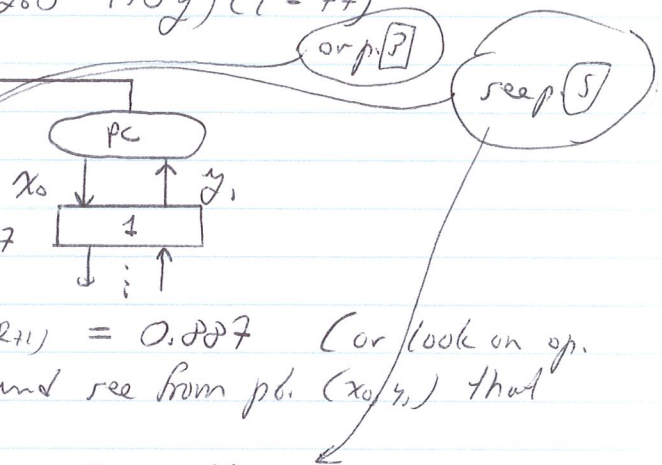 or p. 3
see p. 5
PC
x₀ y₁
1
7
= 0.887 (or look on op.
and see from pt. (x₀, y₁) that